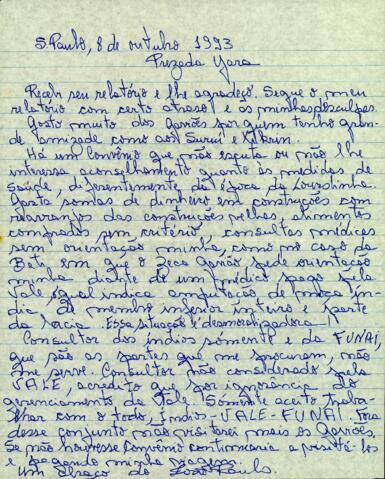 S. Paulo, 8 de outubro 1993
Prezada Yara
Recebi seu relatório e lhe agradeço. Segue o meu
relatório com certo atraso e as minhas desculpas.
Gosto muito dos Gaviões por quem tenho gran-
de amizade como aos Suruí e Xikrin.
Há um Convênio que não escuta ou não lhe
interessa aconselhamento quanto às medidas de
saúde, diferentemente da época da
Gasta somas de dinheiro em construções com
das construções velhas, alimentos
comprados sem critério, consultas médicas
sem orientação minha, como no caso da
Bati em que o Zeca Gavião pede orientação
minha diante de um médico pago pela
Vale o qual indica amputação de moça ín-
dia, de membro inferior inteiro e parte
da bacia. Essa situação é desmoralizadora!
Consultor dos índios somente e da FUNAI,
que são as partes que me procuram, não
me serve. Consultor não considerado pela
VALE, acredito que por ignorância do
gerenciamento da Vale. Somente aceito traba-
lhar com o todo, índios-VALE-FUNAI. Fora
desse conjunto não visitarei mais os Gaviões.
Se não houvesse Convênio continuaria a visitá-los
e pagando minha
Um abraço do João Paulo.